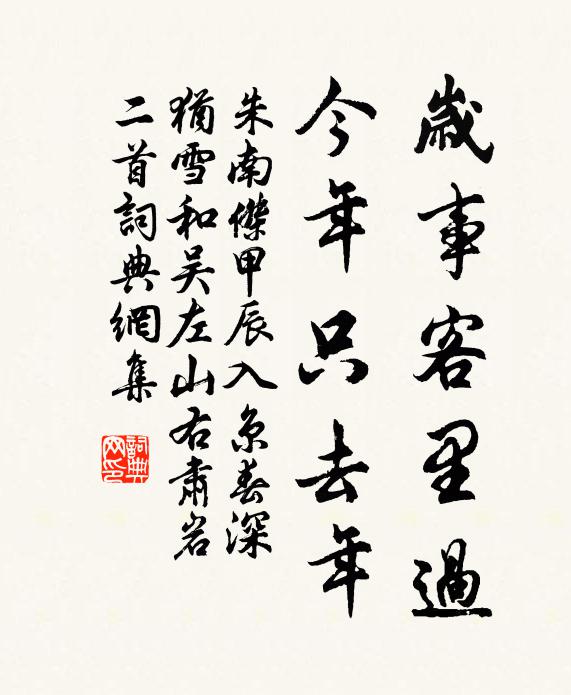 歲事客里過
今年只去年
朱南傑甲辰入京春深
猶雪和吳左山右肅岩
二首詞典網集
詞典网印